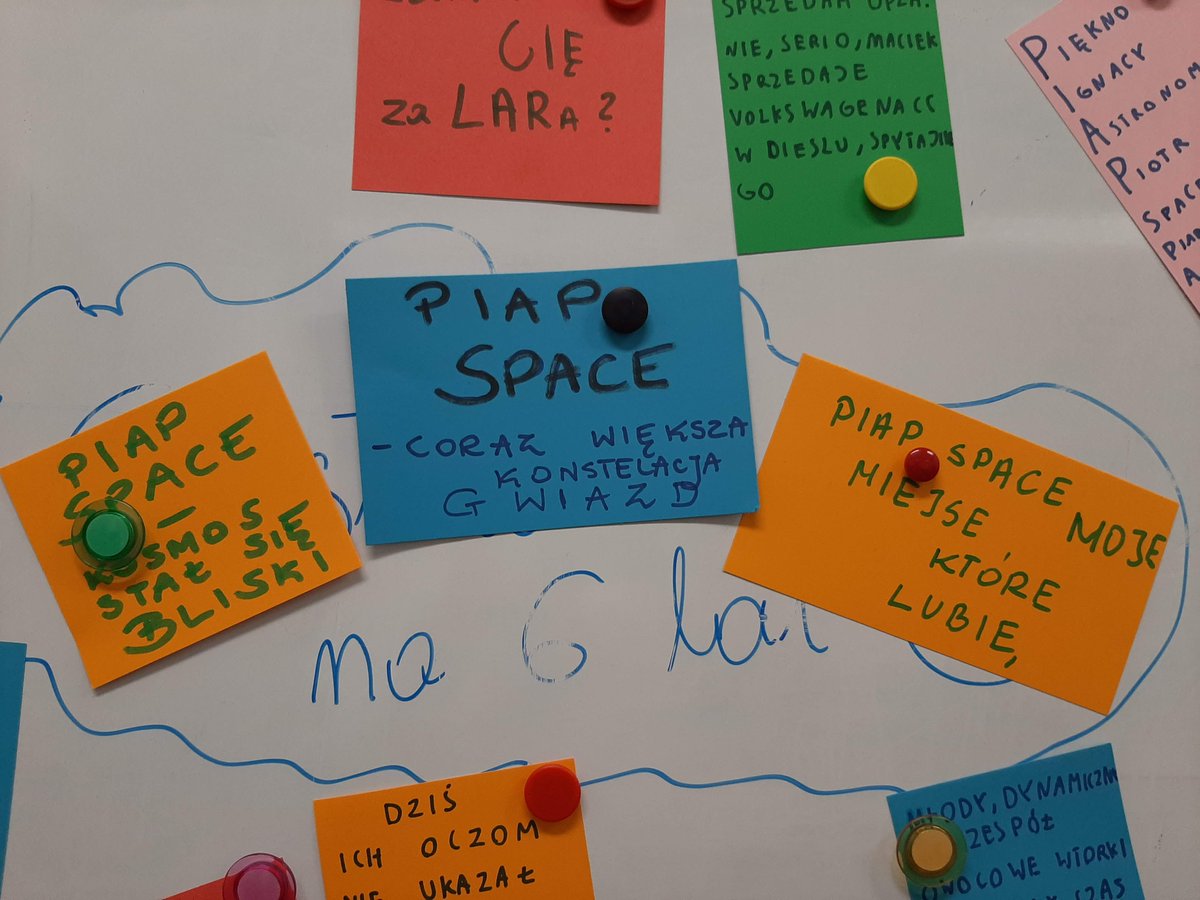 CIĘ
za LARA?
SPRZEDAM OPLA.
NIE, SERIO, MACIEK
SPRZEDAJE
VOLKSWAGENA CC
W DIESLU, SPYTAJCIE
GO
PIĘKNO
IGNACY
ASTRONOM
PIOTR
SPACE
PIAP
A
PIAP
SPACE
- CORAZ WIĘKSZA
KONSTELACJA
GWIAZD
PIAP
SPACE
—
KOSMOS
STAŁ SIĘ
BLISKI
PIAP SPACE MOJE
MIEJSE
KTÓRE
LUBIE,
na 6 lat
DZIŚ
ICH OCZOM
NIE UKAZAŁ
MŁODY, DYNAMICZNY
ZESPÓŁ
OWOCOWE WTORKI
CZAS